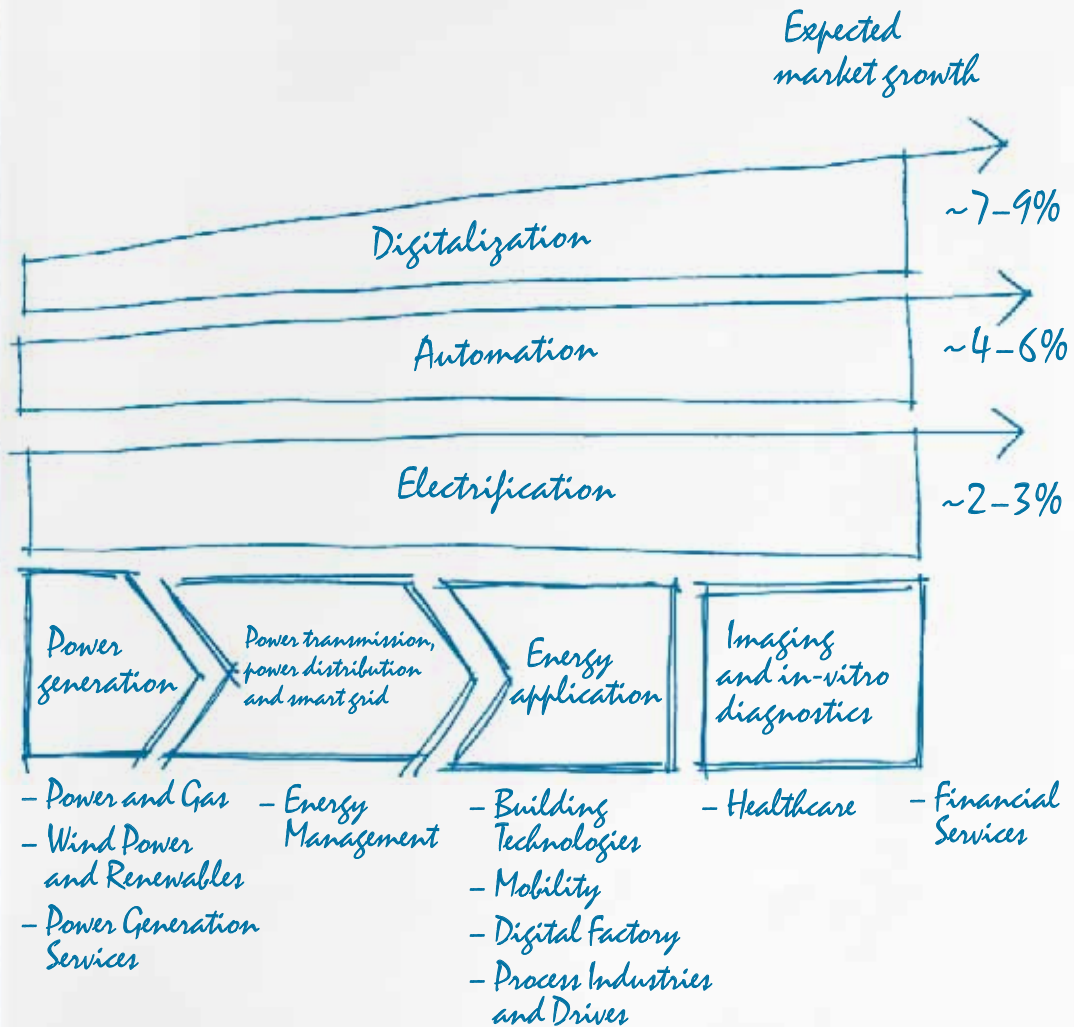 Expected
market growth
Digitalization
~7–9%
Automation
~4–6%
Electrification
~2–3%
Power
generation
Power transmission,
power distribution
and smart grid
Energy
application
Imaging
and in-vitro
diagnostics
– Power and Gas
– Wind Power
and Renewables
– Power Generation
Services
– Energy
Management
– Building
Technologies
– Mobility
– Digital Factory
– Process Industries
and Drives
– Healthcare
– Financial
Services